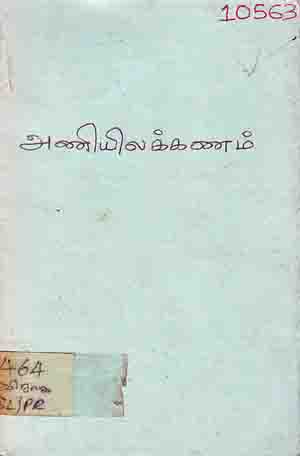 10563
அணியிலக்கணம்
464
SL/PR